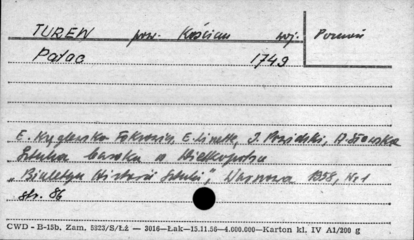 TUREW pow. Kościan woj. Poznań
Pałac 1749
E. Kręglewska Foksowicz, E. Linette, J. Powidzki, A. Sławska
Sztuka baroku w Wielkopolsce
„Biuletyn Historii Sztuki", Warszawa 1958, Nr 1
str. 86
CWD - B-15b. Zam. 5323/S/Łż — 3016—Łak—15.11.56—4.000.000—Karton kl. IV A1/200 g